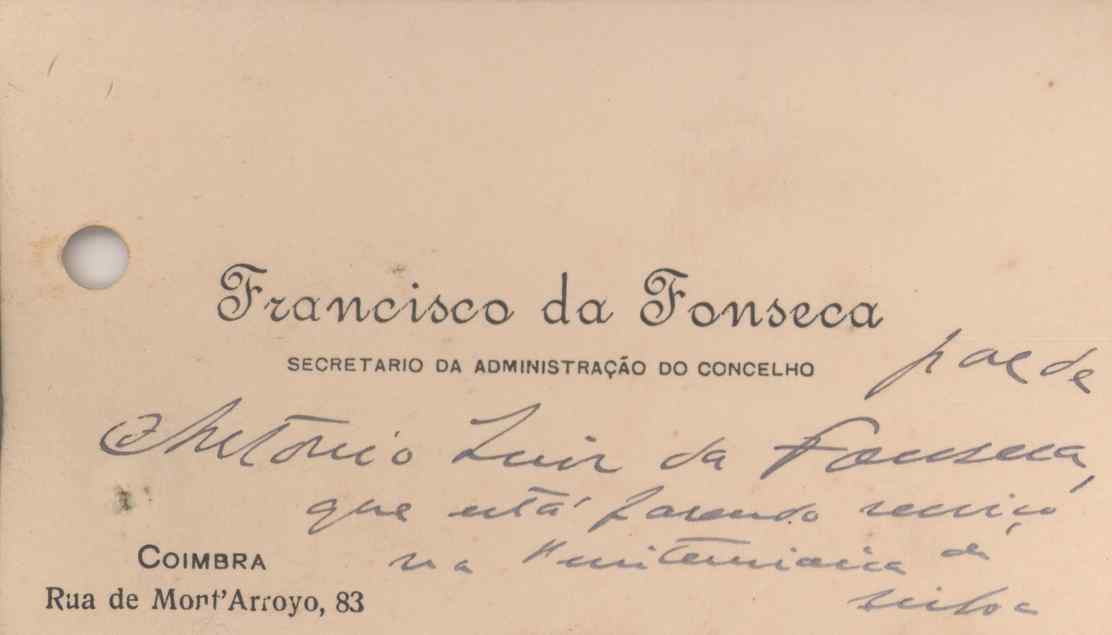 Francisco da Fonseca
SECRETARIO DA ADMINISTRAÇÃO DO CONCELHO
pae de
Antonio Luiz da Fonseca,
que está fazendo serviço
na Penitenciaria de
Lisboa
COIMBRA
Rua de Mont'Arroyo, 83